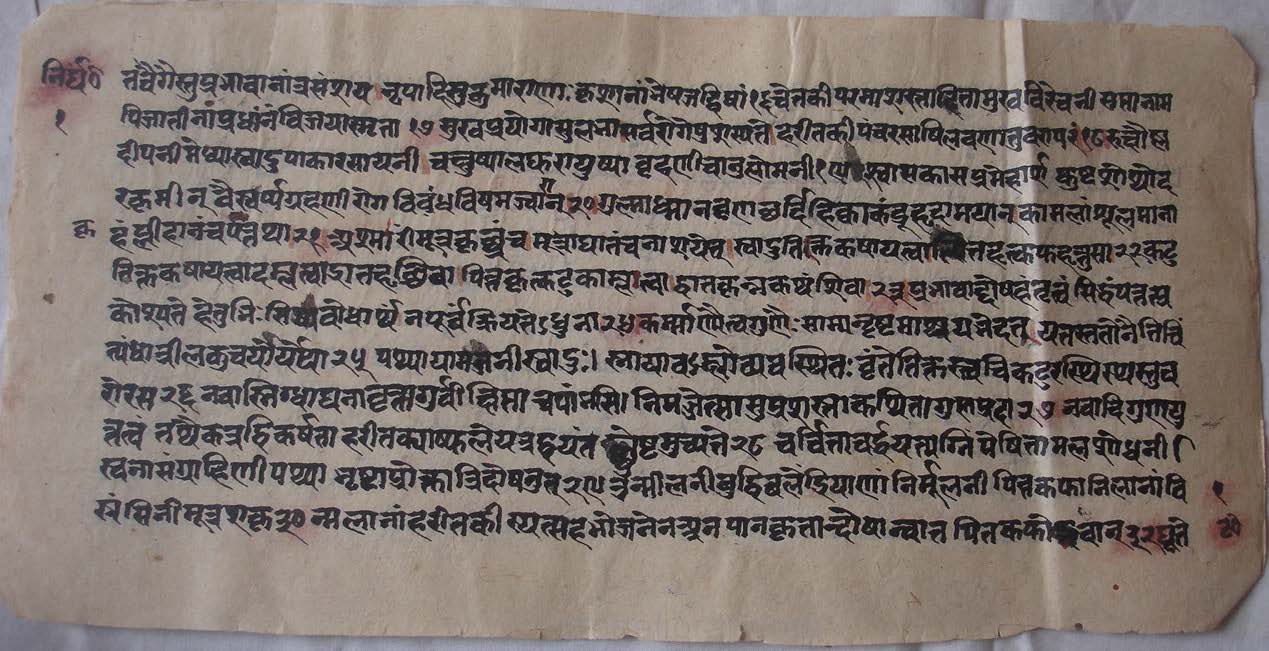 निर्घं०
तत्रैगैस्तुप्रभावानांत्रसंशय नृपादिसुकुमाराणां कृशानांभेषजद्विषां १६ चेतकीपरमाशस्ताहितासुखविरेचनी सप्तानाम
१ पिजातीनांप्रधानंविजयास्मृता १७ सुखप्रयोगासुलभासर्वरोगेषुशस्यते हरीतकीपंचरसाषिलवणातुवरापरं १८ रूक्षोष्ण
दीपनीमेध्यास्वादुपाकारसायनी चक्षुष्यालघुरायुष्या बृंहणीचानुलोमनी १९ श्वासकासप्रमेहार्शः कुष्टशोथोद
रकृमीन् वैस्वर्यग्रहणीरोग विबंधविषमज्वरान् २० गुल्माध्मानव्रणछर्दिहिक्काकंडूहृदामयान् कामलांशूलमाना
कृ हंप्लीहानंचयकृत्तथा २१ अश्मरींमूत्रकृछ्रंच मूत्राघातंचनाशयेत् स्वादुतिक्तकषायत्वात्पित्तहृत्कफहृत्तुसा २२ कटु
तिक्तकषायत्वादम्लत्वाद्वातहृच्छिवा पित्तकृत्कटुकाम्लत्वाद्वातकृन्नकथंशिवा २३ प्रभावाद्दोषहंतृत्वंसिद्धंयत्तत्प्र
काश्यते हेतुभिःशिष्यबोधार्थं नपूर्वंक्रियतेऽधुना २४ कर्मान्यत्वगुणैः साम्यंदृष्टमाश्रयभेदतः यतस्ततोनेतिचिं
त्यंधात्रीलकुचयोर्यथा २५ पथ्यायामज्जनिस्वादुः। स्नायावऽम्लोव्यवस्थितः वृंतेतिक्तस्त्वचिकटुरस्थिस्थस्तुव
रोरसः २६ नवास्निग्धाघनावृत्तागुर्वीक्षिप्ताचयांभसि। निमज्जेत्साप्रशस्ताकथितागुणप्रदा २७ नवादिगुणयु
क्तत्वं तथैकत्रद्विकर्षता हरीतक्याःफलेयत्रद्वयंत श्रेष्टमुच्यते २८ चर्वितावर्द्धयत्यग्निंपेषितामलशोधनी।
स्विन्नासंग्राहिणीपथ्या भृष्टाप्रोक्तात्रिदोषनुत् २९ उन्मीलनीबुद्धिबलेंद्रियाणां निर्मूलनीपित्तकफानिलानां वि
स्रंसिनीमूत्रशकृ ३० न्मलानांहरीतकीस्यात्सहभोजनेन अन्नपानकृतान्दोषान्वातपित्तकफोद्भवान् ३१
१